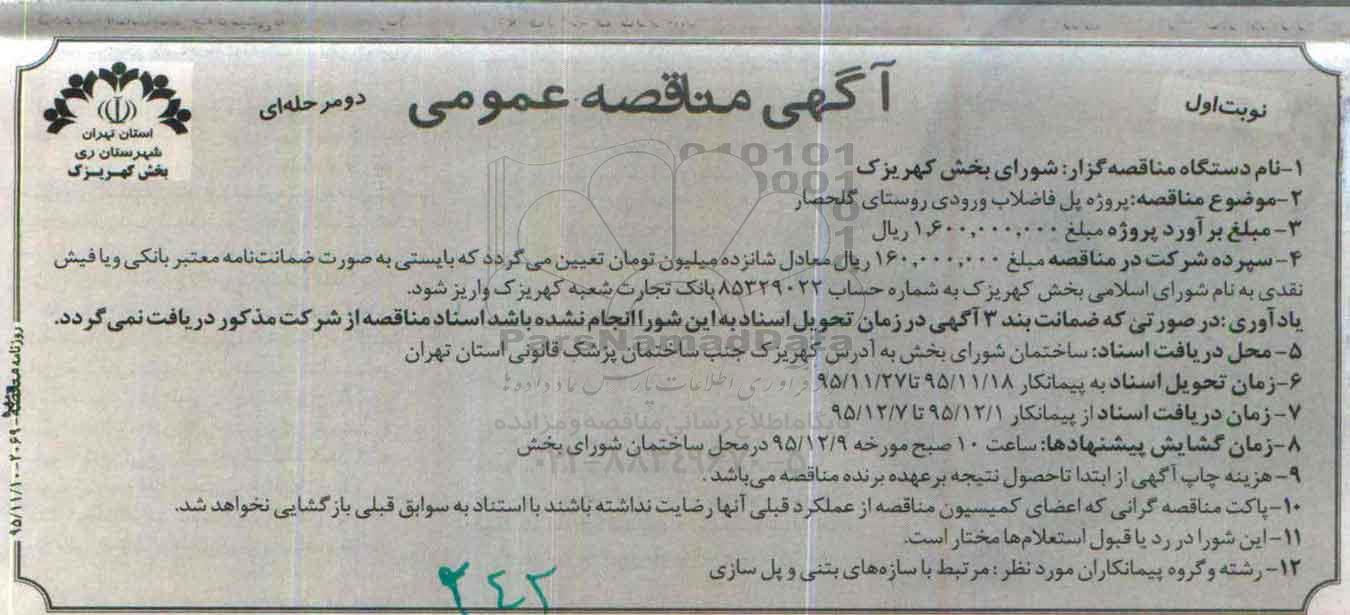 نوبت اول
آگهی مناقصه عمومی دومرحله‌ای
استان تهران
شهرستان ری
بخش کهریزک
۱-نام دستگاه مناقصه‌گزار: شورای بخش کهریزک
۲-موضوع مناقصه: پروژه پل فاضلاب ورودی روستای گلحصار
۳- مبلغ برآورد پروژه مبلغ ۱,۶۰۰,۰۰۰,۰۰۰ ریال
۴- سپرده شرکت در مناقصه مبلغ ۱۶۰,۰۰۰,۰۰۰ ریال معادل شانزده میلیون تومان تعیین می‌گردد که بایستی به صورت ضمانت‌نامه معتبر بانکی ویا فیش
نقدی به نام شورای اسلامی بخش کهریزک به شماره حساب ۸۵۳۲۹۰۲۲ بانک تجارت شعبه کهریزک واریز شود.
یادآوری: در صورتی که ضمانت بند ۳ آگهی در زمان تحویل اسناد به این شورا انجام نشده باشد اسناد مناقصه از شرکت مذکور دریافت نمی‌گردد.
۵- محل دریافت اسناد: ساختمان شورای بخش به آدرس کهریزک جنب ساختمان پزشک قانونی استان تهران
۶-زمان تحویل اسناد به پیمانکار ۹۵/۱۱/۱۸ تا ۹۵/۱۱/۲۷
۷- زمان دریافت اسناد از پیمانکار ۹۵/۱۲/۱ تا ۹۵/۱۲/۷
۸-زمان گشایش پیشنهادها: ساعت ۱۰ صبح مورخه ۹۵/۱۲/۹ درمحل ساختمان شورای بخش
۹-هزینه چاپ آگهی از ابتدا تاحصول نتیجه برعهده برنده مناقصه می‌باشد.
۱۰-پاکت مناقصه گرانی که اعضای کمیسیون مناقصه از عملکرد قبلی آنها رضایت نداشته باشند با استناد به سوابق قبلی بازگشایی نخواهد شد.
۱۱- این شورا در رد یا قبول استعلام‌ها مختار است.
۱۲- رشته و گروه پیمانکاران مورد نظر: مرتبط با سازه‌های بتنی و پل سازی
روزنامه مناقصه - ۲۰۶۹ - ۹۵/۱۱/۱۰
ParsNamadData
فرآوری اطلاعات پارس نماد داده‌ها
پایگاه اطلاع رسانی مناقصه و مزایده
۲۴۲